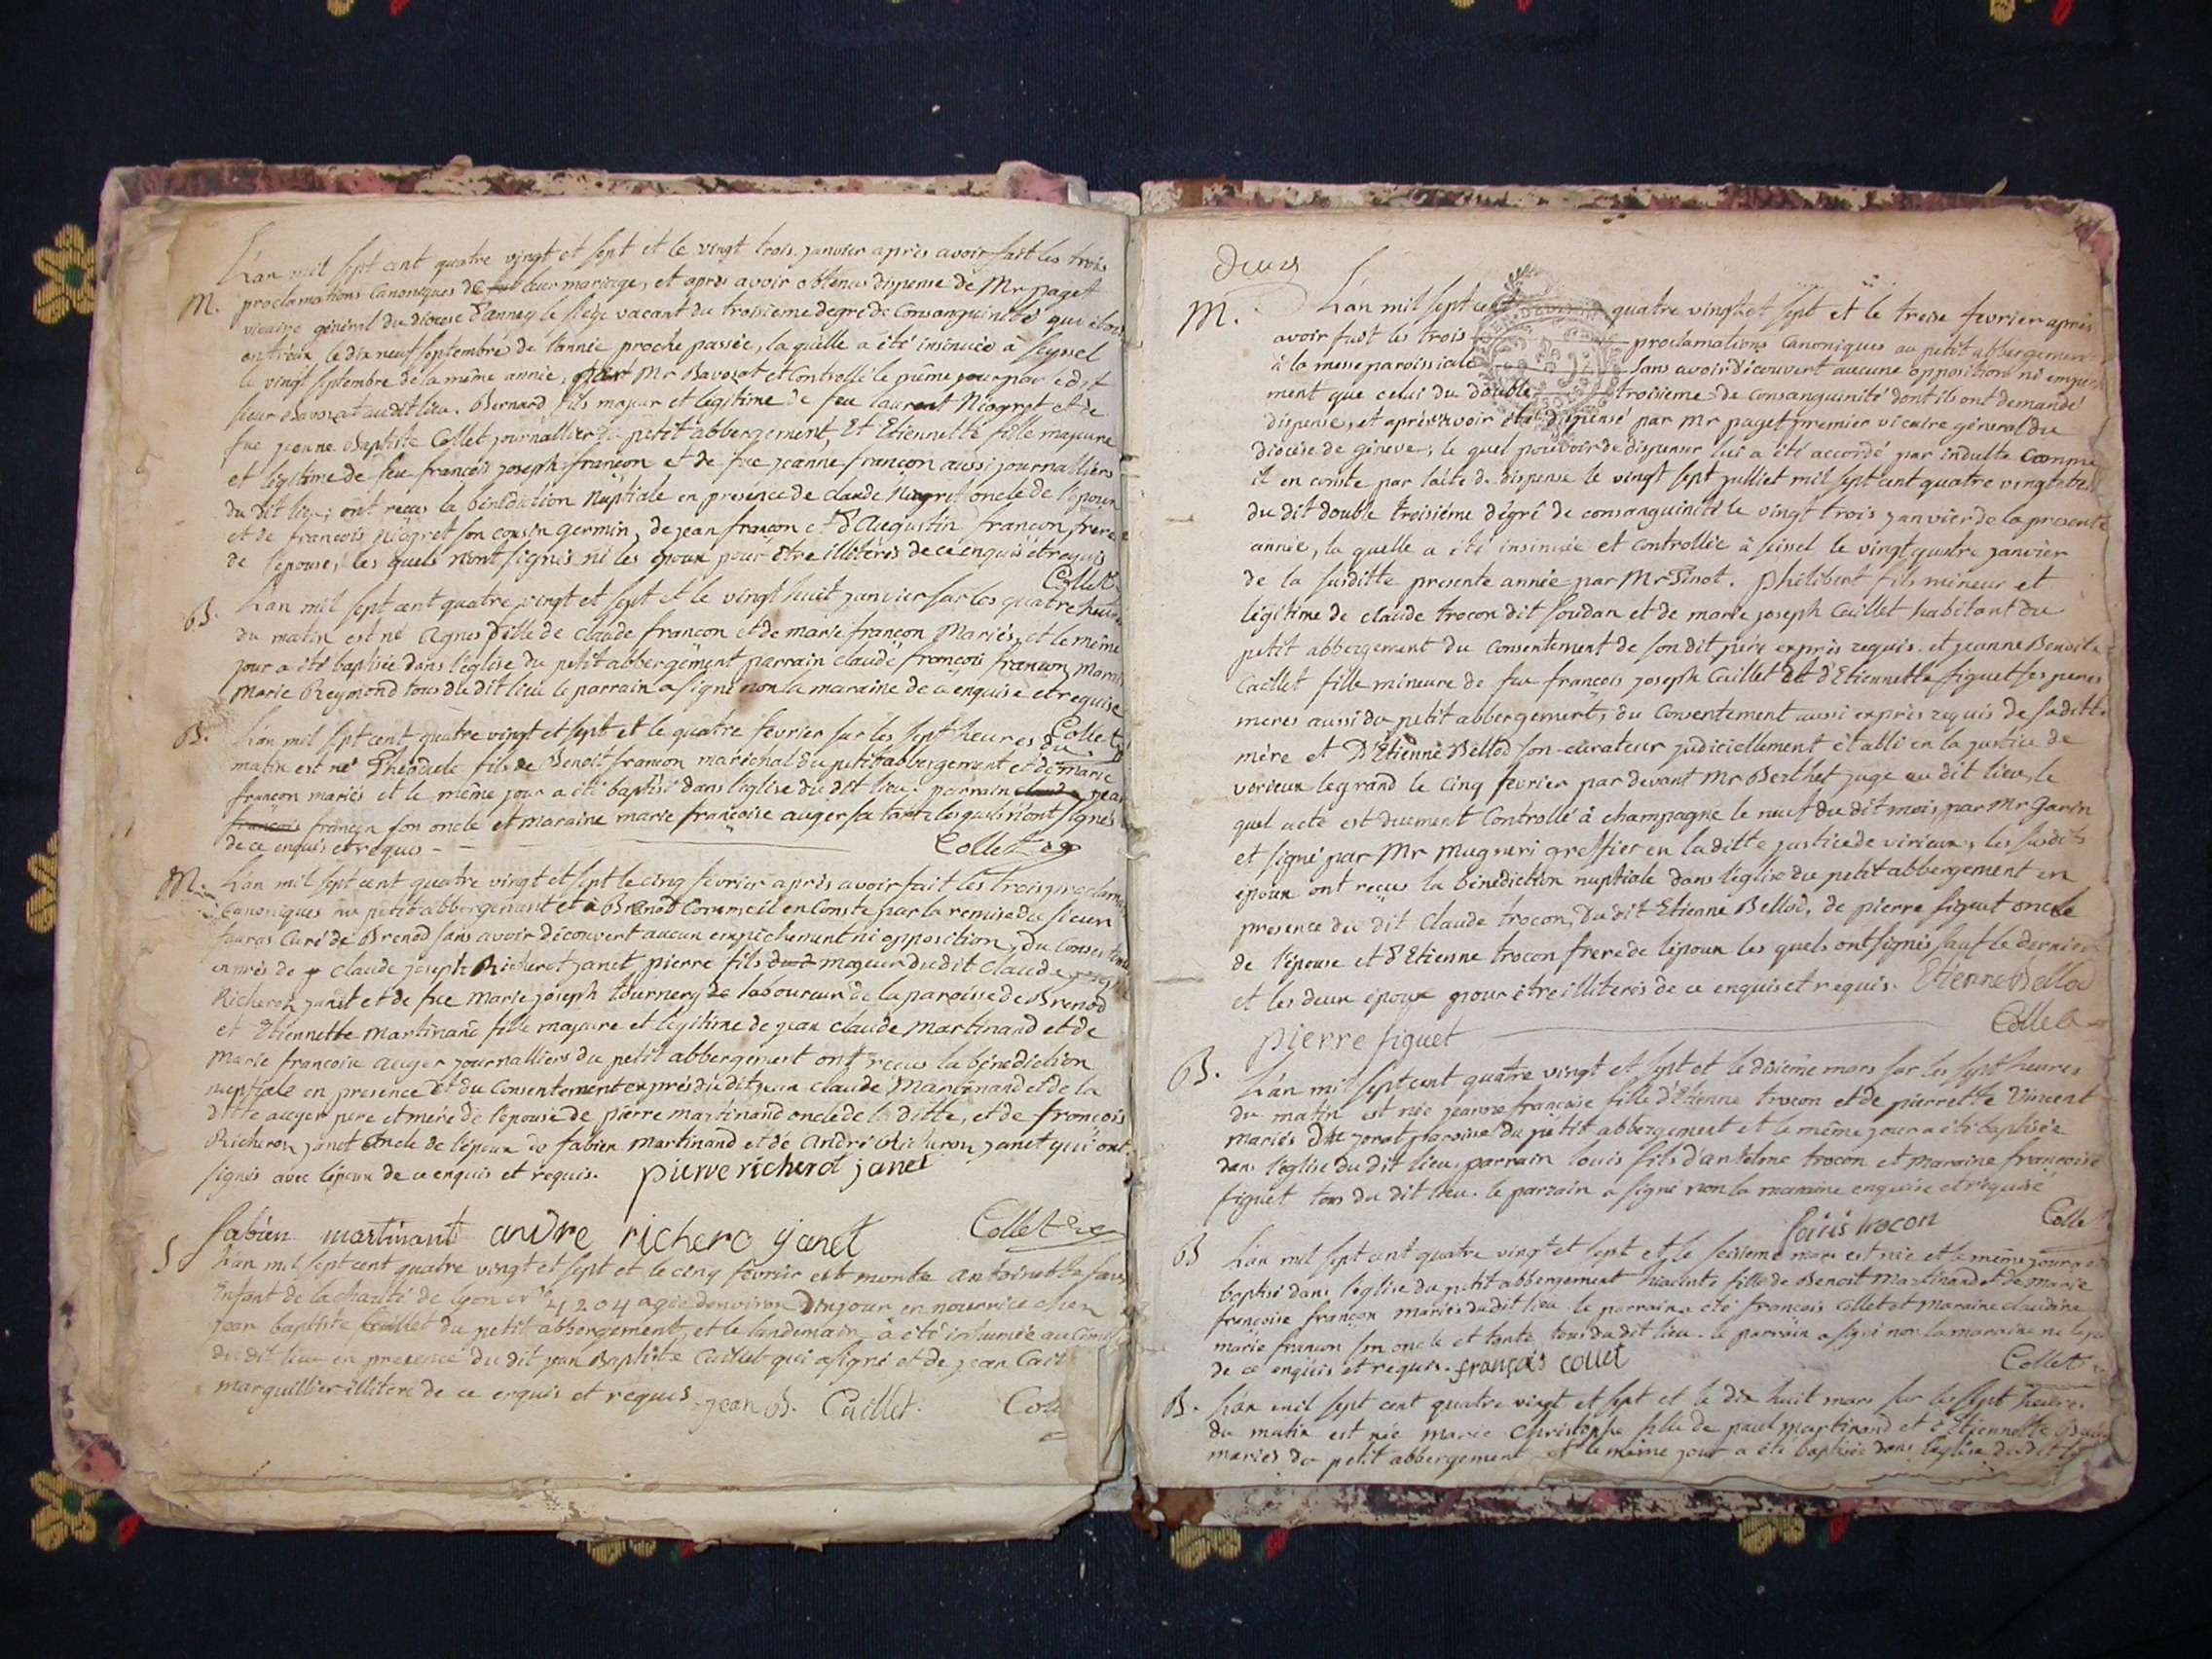 L'an mil sept cent quatre vingt et sept et le vingt trois janvier après avoir fait les trois
M. proclamations canoniques de leur mariage, et après avoir obtenus dispense de Mr paget
vicaire général du diocese d'anney le siege vacant du troisieme degré de consanguinité qui étoit
entr'eux le dix neuf septembre de l'année proche passée, la quelle a été insinuée a seyssel
le vingt septembre de la même année, par Mr Bavozat et controllé le même jour par le dit
sieur Bavozat au dit lieu. Bernard fils majeur et legitime de feu laurent Niogret et de
fue jeanne Baptiste Collet journallier du petit abbergement, Et Etiennette fille majeure
et legitime de feu françois joseph françon et de fue jeanne françon aussi journalliers
du dit lieu; ont reçus la bénédiction nuptiale en presence de claude Niogret oncle de l'epoux
et de françois Niogret son cousin germin, de jean françon et d'Augustin françon frere
de l'epouse, les quels n'ont signés ni les epoux pour être illitérés de ce enquis et requis
Collet
B. L'an mil sept cent quatre vingt et sept et le vingt huit janvier sur les quatre heures
du matin est né Agnes fille de claude françon et de marie françon Mariés, et le même
jour a été baptisée dans l'église du petit abbergement parrain claude françois françon, marraine
Marie Reymond tous du dit lieu le parrain a signé non la maraine de ce enquise et requise
Collet
B. L'an mil sept cent quatre vingt et sept et le quatre fevrier sur les sept heures du
matin est né Theodule fils de Benoit françon maréchal du petit abbergement et de marie
françon mariés et le même jour a été baptisé dans l'église du dit lieu. parrain claude jean
françois françon son oncle et maraine marie françoise auger sa tante les quels n'ont signés
de ce enquis et requis - Collet
M. L'an mil sept cent quatre vingt et sept le cinq fevrier après avoir fait les trois proclamations
canoniques au petit abbergement et a Brenod comme il en conste par la remise du sieur
curé de Brenod sans avoir découvert aucun empêchement ni opposition, du consentement
exprès de claude joseph Richerot janet pierre fils majeur du dit claude joseph
Richerot janet et de fue marie joseph tournery laboureur de la paroisse de Brenod
et Etiennette Martinand fille majeure et legitime de jean claude Martinand et de
Marie françoise auger journalliers du petit abbergement ont reçus la bénédiction
nuptiale en presence et du consentement exprés du dit jean claude Martinand et de la
ditte auger pere et mére de l'epouse de pierre martinand oncle de la ditte, et de françois
Richerot janet oncle de l'epoux de fabien martinand et de andré Richerot janet qui ont
signés avec l'epoux de ce enquis et requis. pierre richerot janet
fabien martinant andre richero janet Collet
S L'an mil sept cent quatre vingt et sept et le cinq fevrier est morte antoinette
enfant de la charité de lyon 4204 agée d'environ dix jour en nourrice chez
jean baptiste Caillet du petit abbergement, et le landemain a été inhumée au
du dit lieu en presence du dit jean Baptiste Caillet qui a signé et de jean
marguillier illiteré de ce enquis et requis jean B. Caillet. Coll
deux
M. L'an mil sept cent quatre vingt et sept et le treise fevrier après
avoir fait les trois proclamations canoniques au petit abbergement
à la messe paroissiale sans avoir découvert aucune opposition ni empeche
ment que celui du double troisieme de consanguinité dont ils ont demandé
dispense, et après avoir été dispensé par Mr paget premier vicaire général du
diocèse de géneve, le quel pouvoir de dispenser lui a été accordé par indulte comme
il en conste par l'acte de dispense le vingt sept julliet mil sept cent quatre vingt et
du dit double troisiéme dégré de consanguinité le vingt trois janvier de la presente
année, la quelle a été insinuée et controllée à seissel le vingt quatre janvier
de la susditte presente année par Mr Pinot. philibert fils mineur et
légitime de claude trocon dit soudan et de marie joseph Caillet habitant du
petit abbergement du consentement de son dit pére exprès requis. et jeanne Benoite
Caillet fille mineure de feu françois joseph Caillet et d'Etiennette figuet ses peres
meres aussi du petit abbergement, du consentement aussi exprès requis de sa ditte
mére et D'Etienne Bellod son curateur judiciellement établi en la justice de
virieux le grand le cinq fevrier par devant Mr Berthet juge au dit lieu, le
quel acte est duement controllé à champagne le neuf du dit mois, par Mr Garin
et signé par Mr Mugneri greffier en la ditte justice de virieux, les susdits
epoux ont reçus la bénédiction nuptiale dans l'église du petit abbergement en
presence du dit Claude trocon, du dit Etienne Bellod, de pierre figuet oncle
de l'épouse et d'Etienne trocon frere de l'époux les quels ont signés sauf le dernier
et les deux époux pour être illiterés de ce enquis et requis. Etienne Bellod
pierre figuet Collet
B. L'an mil sept cent quatre vingt et sept et le dixiéme mars sur les sept heures
du matin est née jeanne françoise fille d'Etienne trocon et de pierrette Vincent
mariés De jorat paroisse du petit abbergement et le même jour a été baptisée
dans l'église du dit lieu, parrain louis fils d'antelme trocon et maraine françoise
figuet tous du dit lieu. le parrain a signé non la maraine enquise et requise
louis trocon Collet
B L'an mil sept cent quatre vingt et sept et le seisieme mars est née et le même jour a été
baptisé dans l'église du petit abbergement hiacinte fille de Benoit Martinand et de marie
françoise françon mariés du dit lieu le parrain a été françois Collet et maraine claudine
marie françon son oncle et tante tous du dit lieu. le parrain a signé non la maraine
de ce enquis et requis. françois collet Collet
B. L'an mil sept cent quatre vingt et sept et le dix huit mars sur les sept heures
du matin est née marie christophe fille de paul Martinand et d'Etiennette
mariés du petit abbergement et le même jour a été baptisée dans l'église du dit